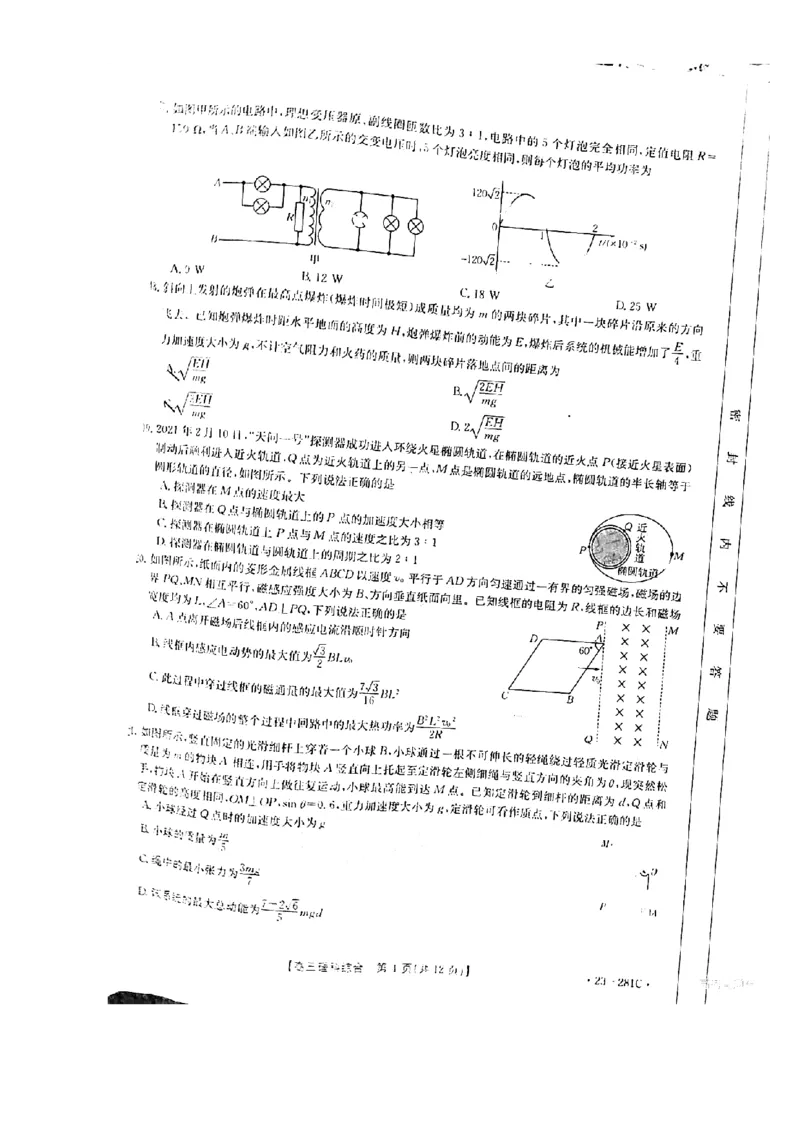 如图甲所示的电路中,理想变压器原、副线圈匝数比为 3∶1,电路中的 5 个灯泡完全相同,定值电阻 R=
Ω,当 A、B 端输入如图乙所示的交变电压时,5 个灯泡亮度相同,则每个灯泡的平均功率为
A
B
R
n₁
n₂
甲
120√2
0
1
2
t/(×10⁻²s)
-120√2
乙
A. 9 W
B. 12 W
C. 18 W
D. 25 W
18. 斜向上发射的炮弹在最高点爆炸(爆炸时间极短)成质量均为 m 的两块碎片,其中一块碎片沿原来的方向
飞去。已知炮弹爆炸时距水平地面的高度为 H,炮弹爆炸前的动能为 E,爆炸后系统的机械能增加了 E/4,重
力加速度大小为 g,不计空气阻力和火药的质量,则两块碎片落地点间的距离为
A. √(EH/mg)
B. √(2EH/mg)
√(3EH/mg)
D. 2√(EH/mg)
19. 2021 年 2 月 10 日,“天问一号”探测器成功进入环绕火星椭圆轨道,在椭圆轨道的近火点 P(接近火星表面)
制动后顺利进入近火轨道,Q 点为近火轨道上的另一点,M 点是椭圆轨道的远地点,椭圆轨道的半长轴等于
圆形轨道的直径,如图所示。下列说法正确的是
A. 探测器在 M 点的速度最大
B. 探测器在 Q 点与椭圆轨道上的 P 点的加速度大小相等
C. 探测器在椭圆轨道上 P 点与 M 点的速度之比为 3∶1
D. 探测器在椭圆轨道与圆轨道上的周期之比为 2∶1
P
Q
近火轨道
M
椭圆轨道
20. 如图所示,纸面内的菱形金属线框 ABCD 以速度 v₀ 平行于 AD 方向匀速通过一有界的匀强磁场,磁场的边
界 PQ、MN 相互平行,磁感应强度大小为 B、方向垂直纸面向里。已知线框的电阻为 R,线框的边长和磁场
宽度均为 L,∠A=60°,AD⊥PQ,下列说法正确的是
A. A 点离开磁场后线框内的感应电流沿顺时针方向
B. 线框内感应电动势的最大值为 √3/2 BLv₀
C. 此过程中穿过线框的磁通量的最大值为 7√3/16 BL²
D. 线框穿过磁场的整个过程中回路中的最大热功率为 B²L²v₀²/2R
D
A
60°
C
B
v₀
P
M
Q
N
21. 如图所示,竖直固定的光滑细杆上穿着一个小球 B,小球通过一根不可伸长的轻绳绕过轻质光滑定滑轮与
质量为 m 的物块 A 相连,用手将物块 A 竖直向上托起至定滑轮左侧细绳与竖直方向的夹角为 θ,现突然松
手,物块 A 开始在竖直方向上做往复运动,小球最高能到达 M 点。已知定滑轮到细杆的距离为 d,Q 点和
定滑轮的高度相同,OM⊥OP,sin θ=0.6,重力加速度大小为 g,定滑轮可看作质点,下列说法正确的是
A. 小球经过 Q 点时的加速度大小为 g
B. 小球的质量为 m/5
C. 绳中的最小张力为 3mg/7
D. 该系统的最大总动能为 (7-2√6)/5 mgd
M
P
【高三理科综合 第 4 页(共 12 页)】
·23-281C·
密
封
线
内
不
要
答
题